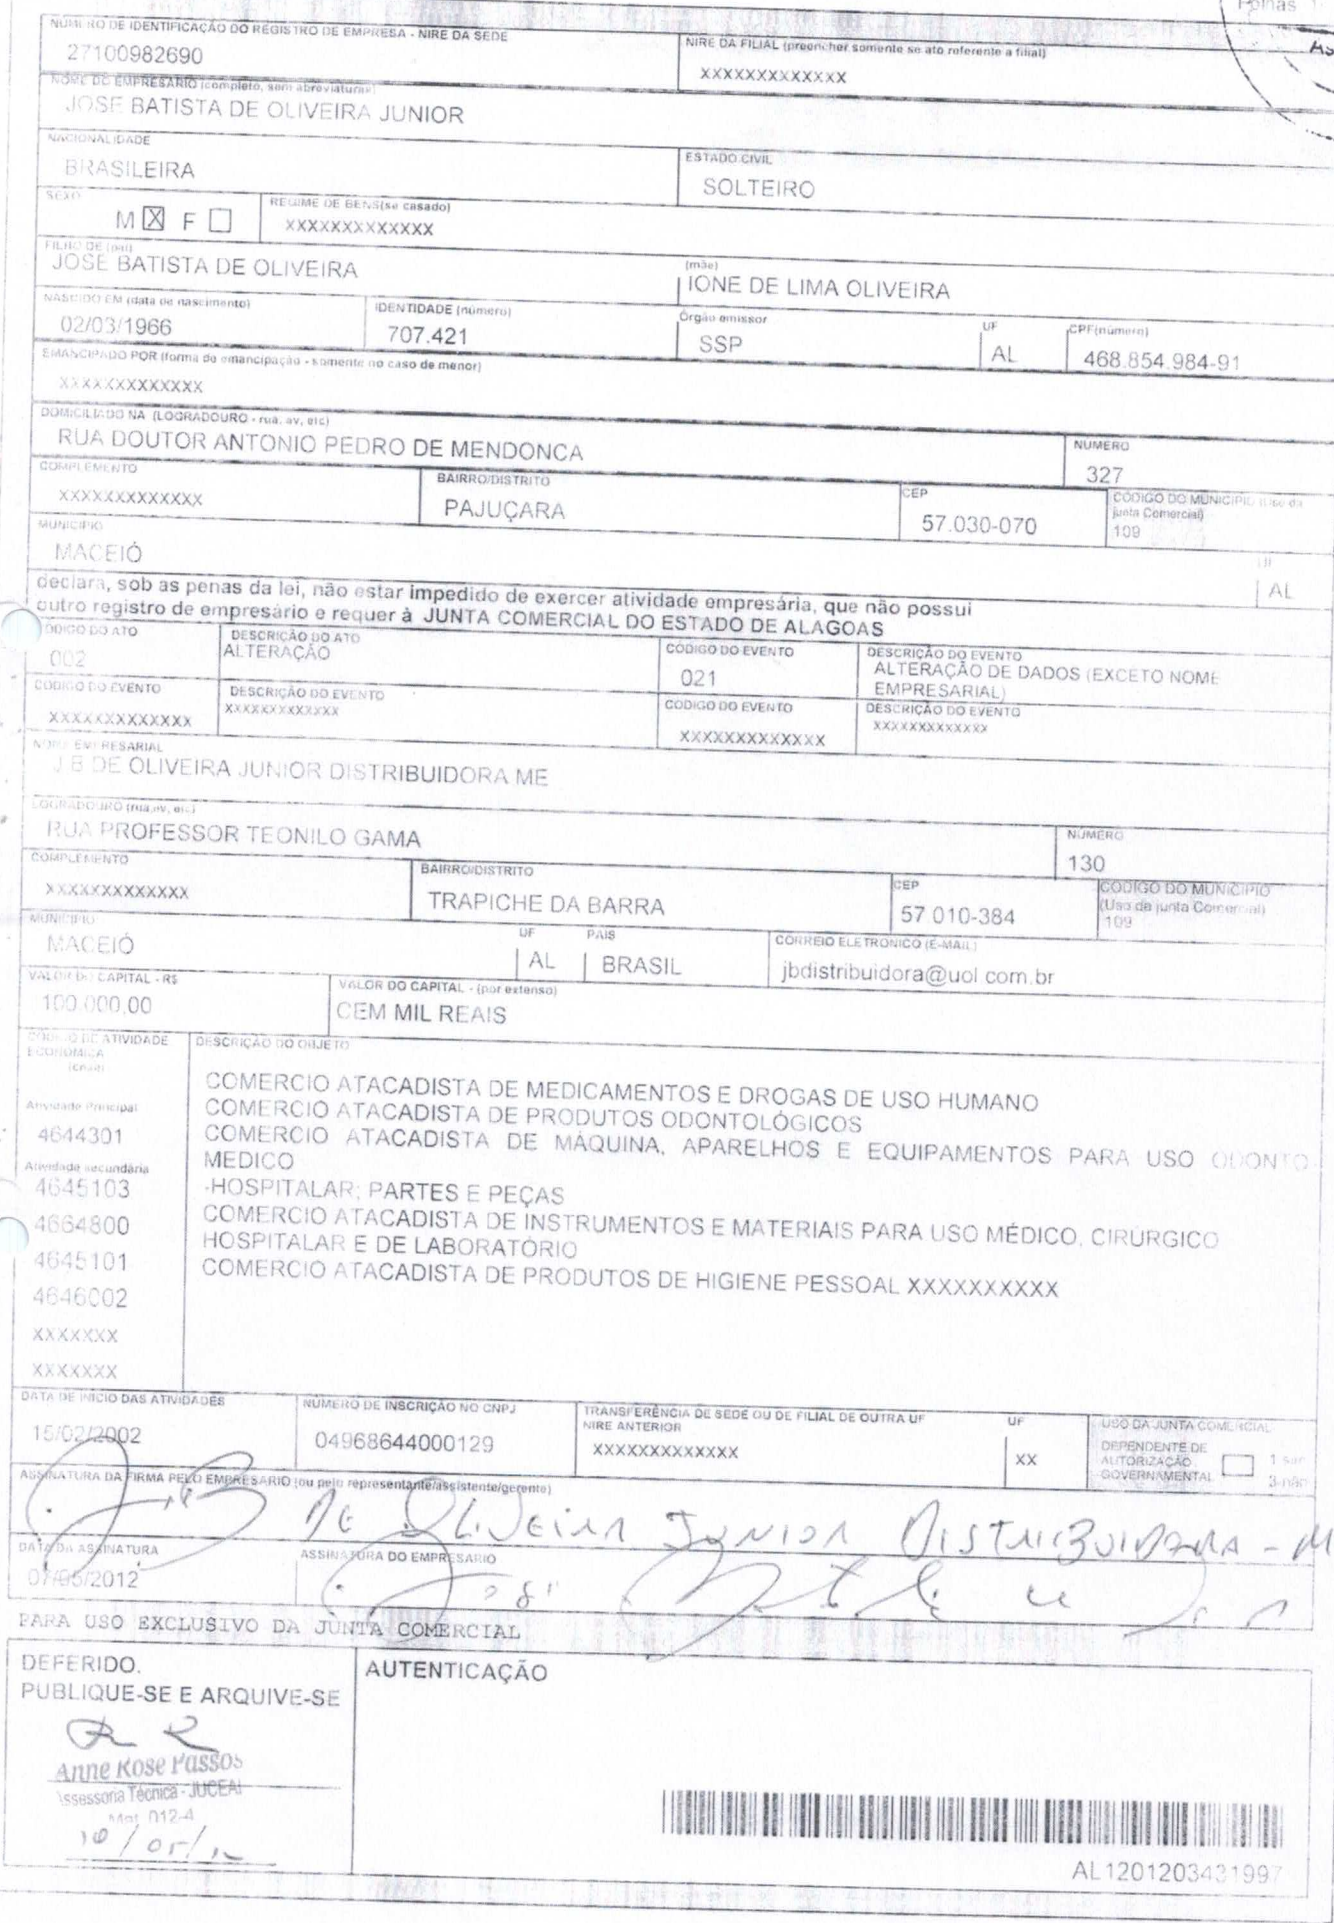 Folhas
NÚMERO DE IDENTIFICAÇÃO DO REGISTRO DE EMPRESA - NIRE DA SEDE
27100982690
NIRE DA FILIAL (preencher somente se ato referente a filial)
XXXXXXXXXXXXX
NOME DO EMPRESÁRIO (completo, sem abreviaturas)
JOSE BATISTA DE OLIVEIRA JUNIOR
NACIONALIDADE
BRASILEIRA
ESTADO CIVIL
SOLTEIRO
SEXO
M X F
REGIME DE BENS(se casado)
XXXXXXXXXXXXX
FILHO DE (pai)
JOSE BATISTA DE OLIVEIRA
(mãe)
IONE DE LIMA OLIVEIRA
NASCIDO EM (data de nascimento)
02/03/1966
IDENTIDADE (número)
707.421
Órgão emissor
SSP
UF
AL
CPF(número)
468.854.984-91
EMANCIPADO POR (forma do emancipação - somente no caso de menor)
XXXXXXXXXXXXX
DOMICILIADO NA (LOGRADOURO - rua, av, etc)
RUA DOUTOR ANTONIO PEDRO DE MENDONCA
NÚMERO
327
COMPLEMENTO
XXXXXXXXXXXXX
BAIRRO/DISTRITO
PAJUÇARA
CEP
57.030-070
CÓDIGO DO MUNICÍPIO (Uso da junta Comercial)
109
MUNICÍPIO
MACEIÓ
UF
AL
declara, sob as penas da lei, não estar impedido de exercer atividade empresária, que não possui
outro registro de empresário e requer à JUNTA COMERCIAL DO ESTADO DE ALAGOAS
CÓDIGO DO ATO
002
DESCRIÇÃO DO ATO
ALTERAÇÃO
CÓDIGO DO EVENTO
021
DESCRIÇÃO DO EVENTO
ALTERAÇÃO DE DADOS (EXCETO NOME
EMPRESARIAL)
CÓDIGO DO EVENTO
XXXXXXXXXXXXX
DESCRIÇÃO DO EVENTO
XXXXXXXXXXXXX
CÓDIGO DO EVENTO
XXXXXXXXXXXXX
DESCRIÇÃO DO EVENTO
XXXXXXXXXXXXX
NOME EMPRESARIAL
J B DE OLIVEIRA JUNIOR DISTRIBUIDORA ME
LOGRADOURO (rua,av, etc)
RUA PROFESSOR TEONILO GAMA
NÚMERO
130
COMPLEMENTO
XXXXXXXXXXXXX
BAIRRO/DISTRITO
TRAPICHE DA BARRA
CEP
57 010-384
CÓDIGO DO MUNICÍPIO
(Uso da junta Comercial)
109
MUNICÍPIO
MACEIÓ
UF
AL
PAÍS
BRASIL
CORREIO ELETRÔNICO (E-MAIL)
jbdistribuidora@uol com.br
VALOR DO CAPITAL - R$
100.000,00
VALOR DO CAPITAL - (por extenso)
CEM MIL REAIS
CÓDIGO DE ATIVIDADE
ECONÔMICA
(CNAE)
Atividade Principal
4644301
Atividade secundária
4645103
4664800
4645101
4646002
XXXXXXX
XXXXXXX
DESCRIÇÃO DO OBJETO
COMERCIO ATACADISTA DE MEDICAMENTOS E DROGAS DE USO HUMANO
COMERCIO ATACADISTA DE PRODUTOS ODONTOLÓGICOS
COMERCIO ATACADISTA DE MÁQUINA, APARELHOS E EQUIPAMENTOS PARA USO ODONTO
MEDICO
-HOSPITALAR; PARTES E PEÇAS
COMERCIO ATACADISTA DE INSTRUMENTOS E MATERIAIS PARA USO MÉDICO, CIRÚRGICO
HOSPITALAR E DE LABORATÓRIO
COMERCIO ATACADISTA DE PRODUTOS DE HIGIENE PESSOAL XXXXXXXXXX
DATA DE INÍCIO DAS ATIVIDADES
15/02/2002
NÚMERO DE INSCRIÇÃO NO CNPJ
04968644000129
TRANSFERÊNCIA DE SEDE OU DE FILIAL DE OUTRA UF
NIRE ANTERIOR
XXXXXXXXXXXXX
UF
XX
USO DA JUNTA COMERCIAL
DEPENDENTE DE
AUTORIZAÇÃO
GOVERNAMENTAL
1 sim
3-não
ASSINATURA DA FIRMA PELO EMPRESÁRIO (ou pelo representante/assistente/gerente)
J.B DE OLIVEIRA JUNIOR DISTRIBUIDORA - M
DATA DA ASSINATURA
07/05/2012
ASSINATURA DO EMPRESÁRIO
PARA USO EXCLUSIVO DA JUNTA COMERCIAL
DEFERIDO.
PUBLIQUE-SE E ARQUIVE-SE
Anne Rose Passos
Assessoria Técnica - JUCEAL
Mat. 012-4
10/05/12
AUTENTICAÇÃO
AL1201203431997